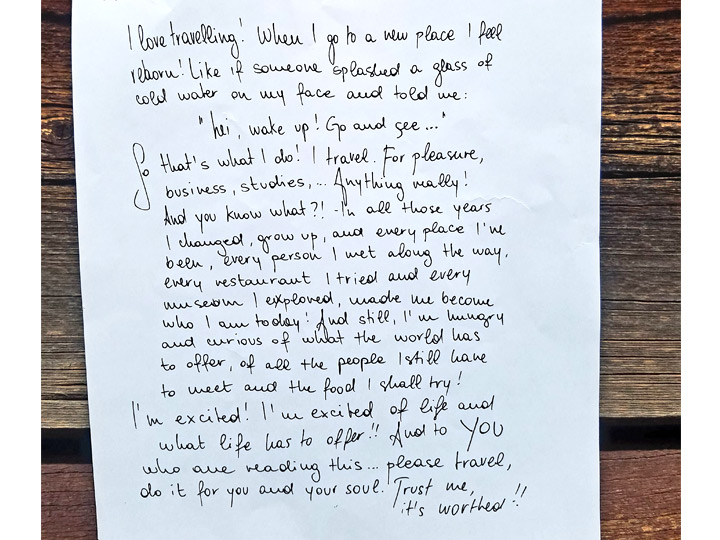 I love travelling! When I go to a new place I feel
reborn! Like if someone splashed a glass of
cold water on my face and told me:
"hei, wake up! Go and see..."
So that's what I do! I travel. For pleasure,
business, studies,... Anything really!
And you know what?! In all those years
I changed, grow up, and every place I've
been, every person I met along the way,
every restaurant I tried and every
museum I explored, made me become
who I am today! And still, I'm hungry
and curious of what the world has
to offer, of all the people I still have
to meet and the food I shall try!
I'm excited! I'm excited of life and
what life has to offer!! And to YOU
who are reading this... please travel,
do it for you and your soul. Trust me,
it's worthed!!